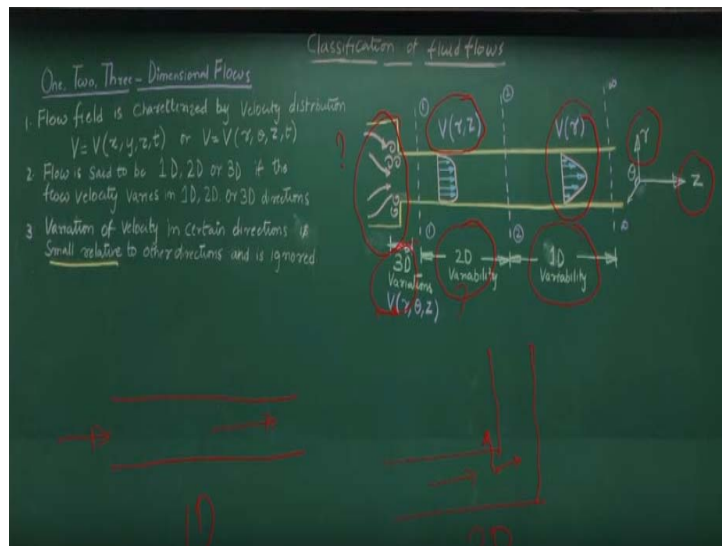 Classification of fluid flows
One, Two, Three - Dimensional Flows
1. Flow field is charetterized by velocity distribution
V = V(x, y, z, t) or V = V(r, θ, z, t)
2. Flow is said to be 1D, 2D or 3D if the
flow velocity varies in 1D, 2D or 3D directions
3 Variation of velocity in certain directions is
Small relative to other directions and is ignored
?
① ② ③
V(r, z) V(r)
r
θ
z
① ②
3D 2D 1D
Variations Variability Variability
V(r, θ, z)
?
1D
2D